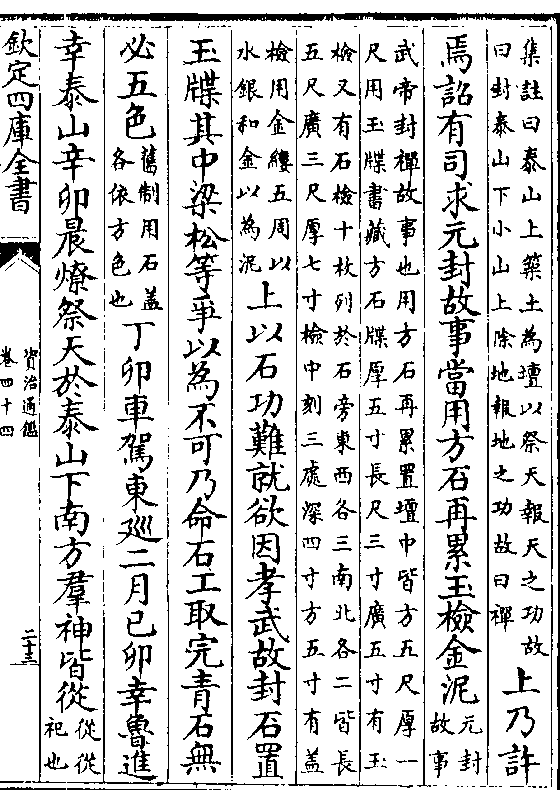 集註曰泰山上築土為壇以祭天報天之功故
曰封泰山下小山上除地報地之功故曰禪
上乃許
焉詔有司求元封故事當用方石再累玉檢金泥
元封
故事
武帝封禪故事也用方石再累置壇中皆方五尺厚一
尺用玉牒書藏方石牒厚五寸長尺三寸廣五寸有玉
檢又有石檢十枚列於石旁東西各三南北各二皆長
五尺廣三尺厚七寸檢中刻三處深四寸方五寸有蓋
檢用金縷五周以
水銀和金以為泥
上以石功難就欲因孝武故封石置
玉牒其中梁松等爭以為不可乃命石工取完青石無
必五色
舊制用石蓋
各依方色也
丁卯車駕東廵二月己卯幸魯進
幸泰山辛卯晨燎祭天於泰山下南方羣神皆從
從從
祀也
欽定四庫全書
資治通鑑
卷四十四
二十三